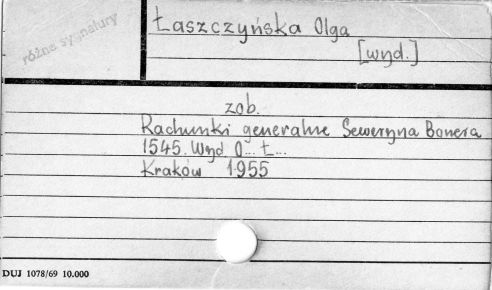 różne sygnatury
Łaszczyńska Olga
[wyd.]
zob.
Rachunki generalne Seweryna Bonera
1545. Wyd O... Ł...
Kraków 1955
DUJ 1078/69 10.000